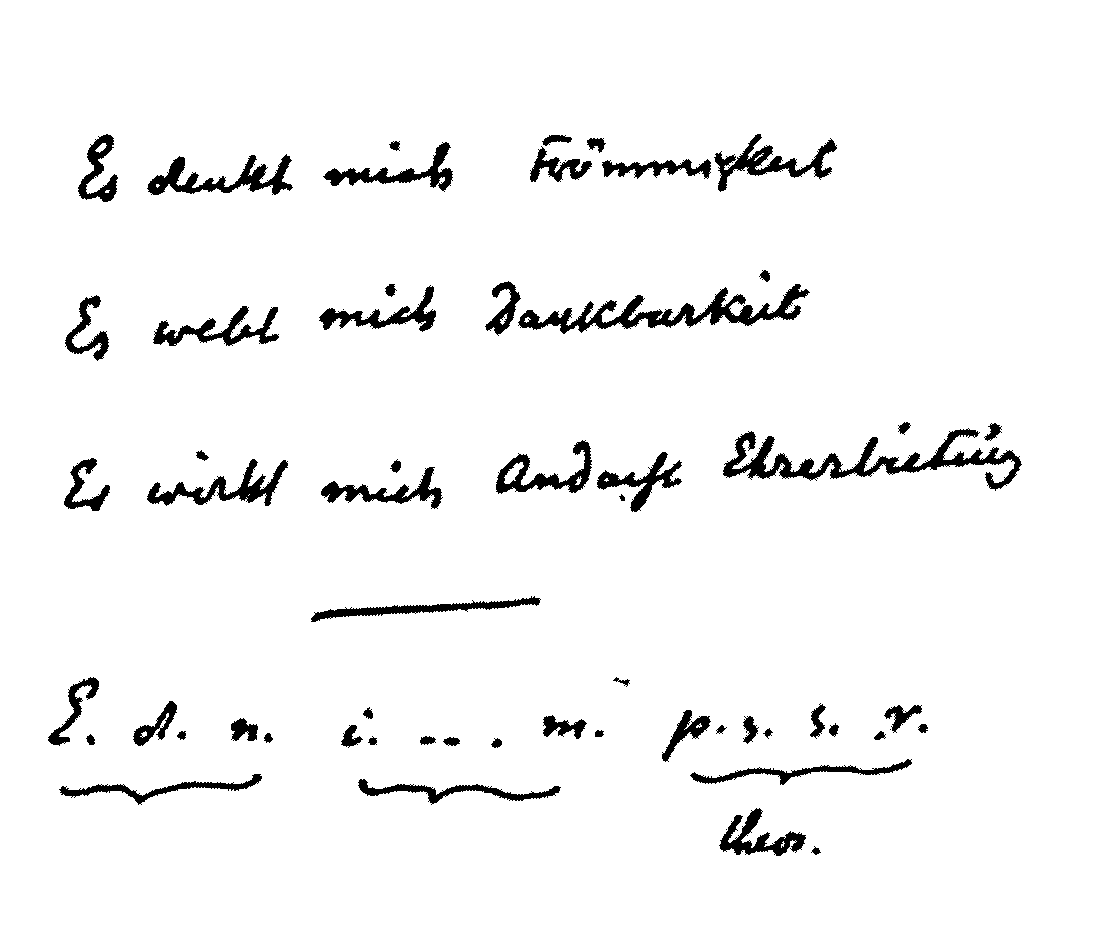 Es denkt mich Frömmigkeit
Es webt mich Dankbarkeit
Es wirkt mich Andacht Ehrerbietung
E. d. n. i. -- . m. p. s. s. r.
theos.